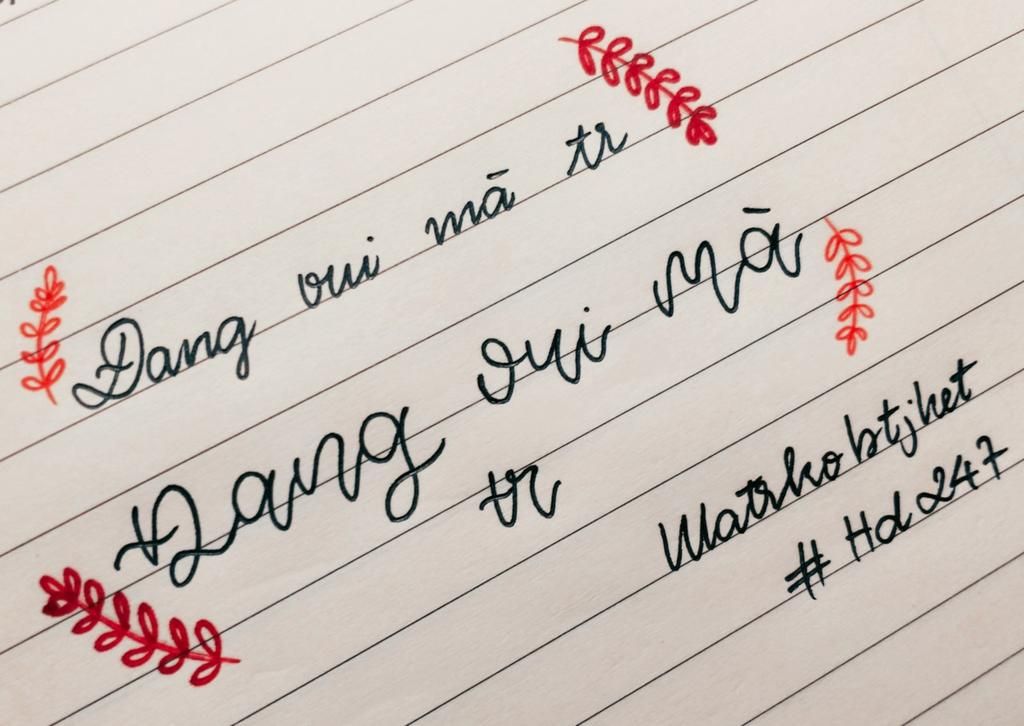 Đang vui mà tr
Đang vui mà
tr
Matrkobtjhet
# Hd247